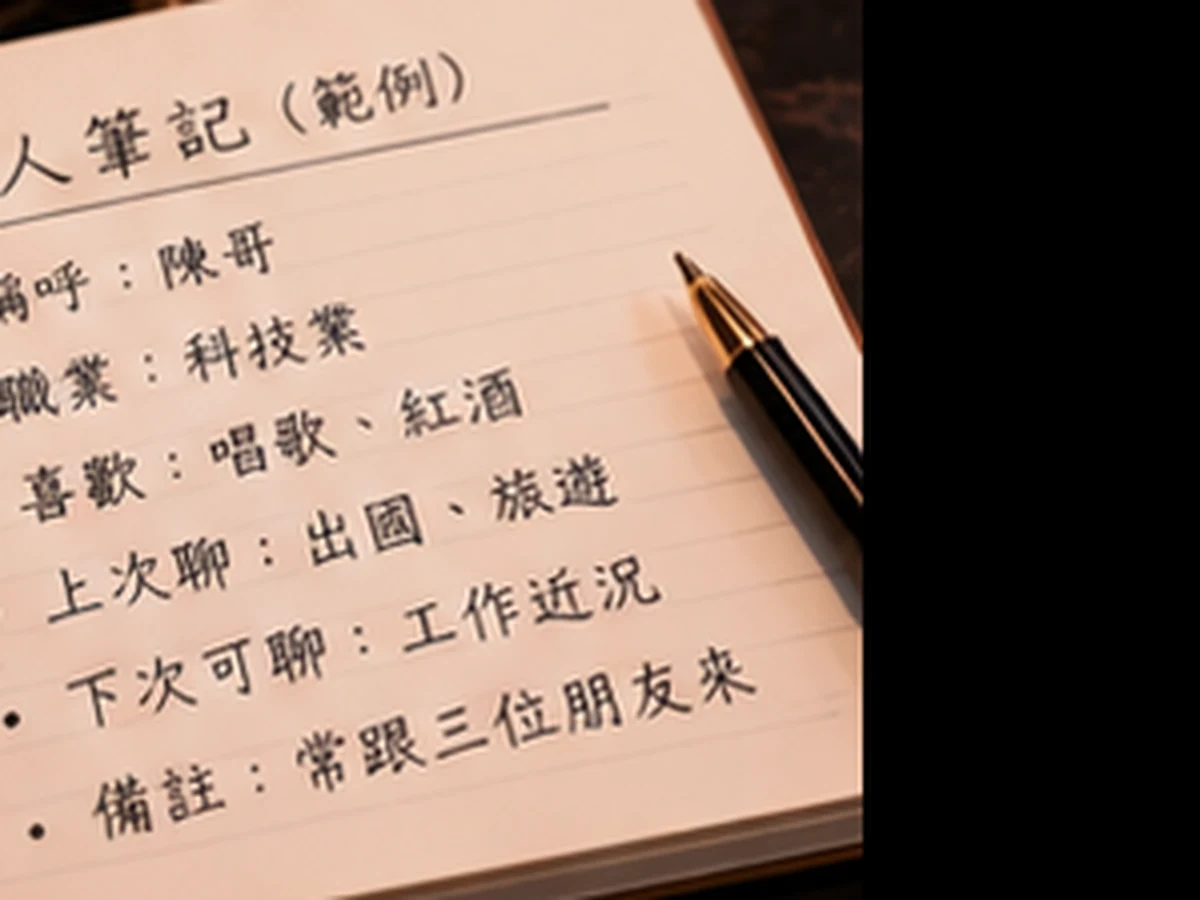 人筆記（範例）
稱呼：陳哥
職業：科技業
喜歡：唱歌、紅酒
上次聊：出國、旅遊
• 下次可聊：工作近況
• 備註：常跟三位朋友來